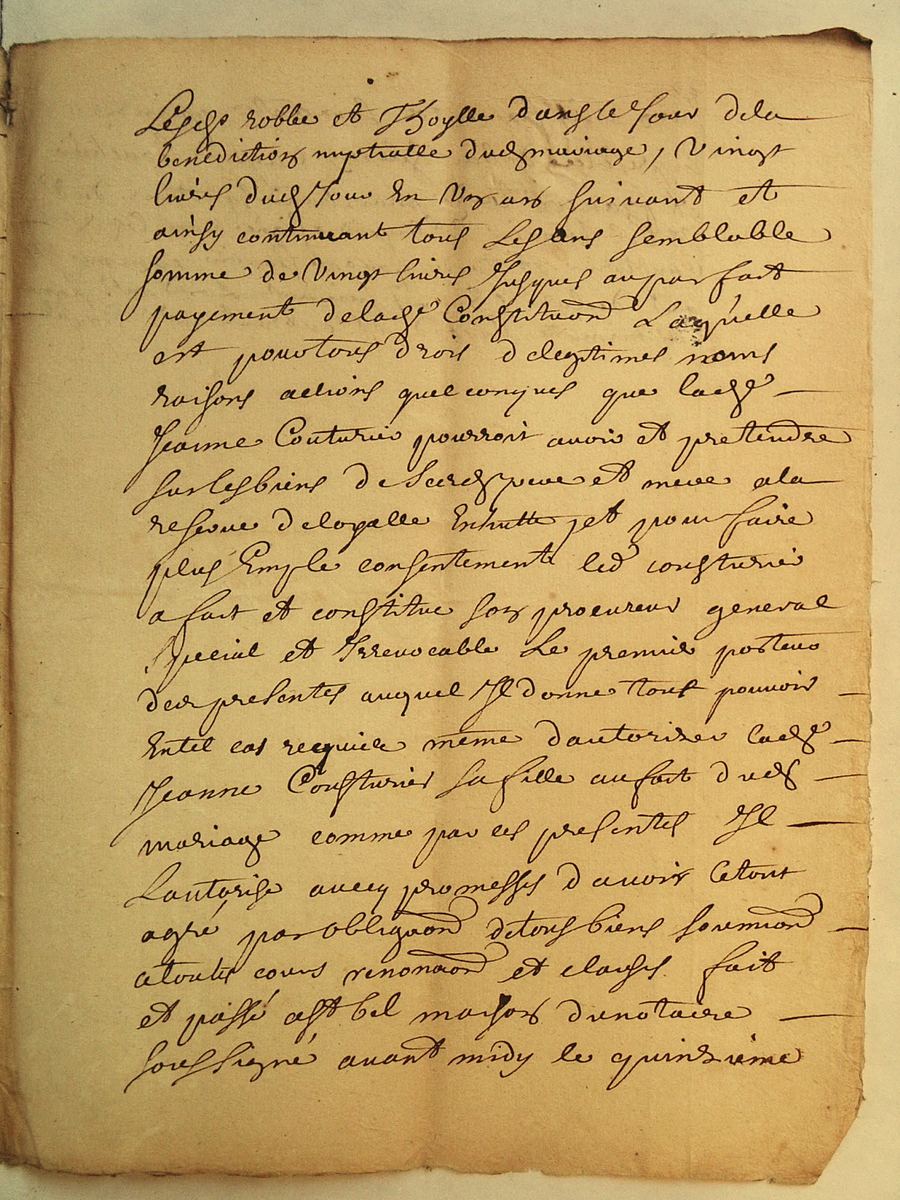 Lesd robbe et Thoylle dans le Jour dela
benediction nuptialle dud mariage, Vingt
livres dud Jour En Un an suivant et
ainsy continuant tous Les ans semblable
somme de Vingt livres Jusques au parfait
payement de lad Constituon Laquelle
est pour tous drois et legitimes noms
raisons actions quelconques que lad
Jeanne Couturier pourroit avoir et pretendre
sur les biens de Sesd pere et mere a la
reserve de loyalle et pour faire
plus Emple consentement led cousturier
a fait et constitue son procureur general
special et Irrevocable Le premier porteur
des presentes auquel Il donne tout pouvoir
En tel cas requier meme dautoriser lad
Jeanne Cousturier sa fille au fait dud
mariage comme par ces presentes Il
Lautorise avecq promesses davoir le tout
agré par obligaon de tous biens soumiond
a toutes cours renonaond et clauses fait
et passé a St bel maison du notaire
soussigné avant midy le quinzieme